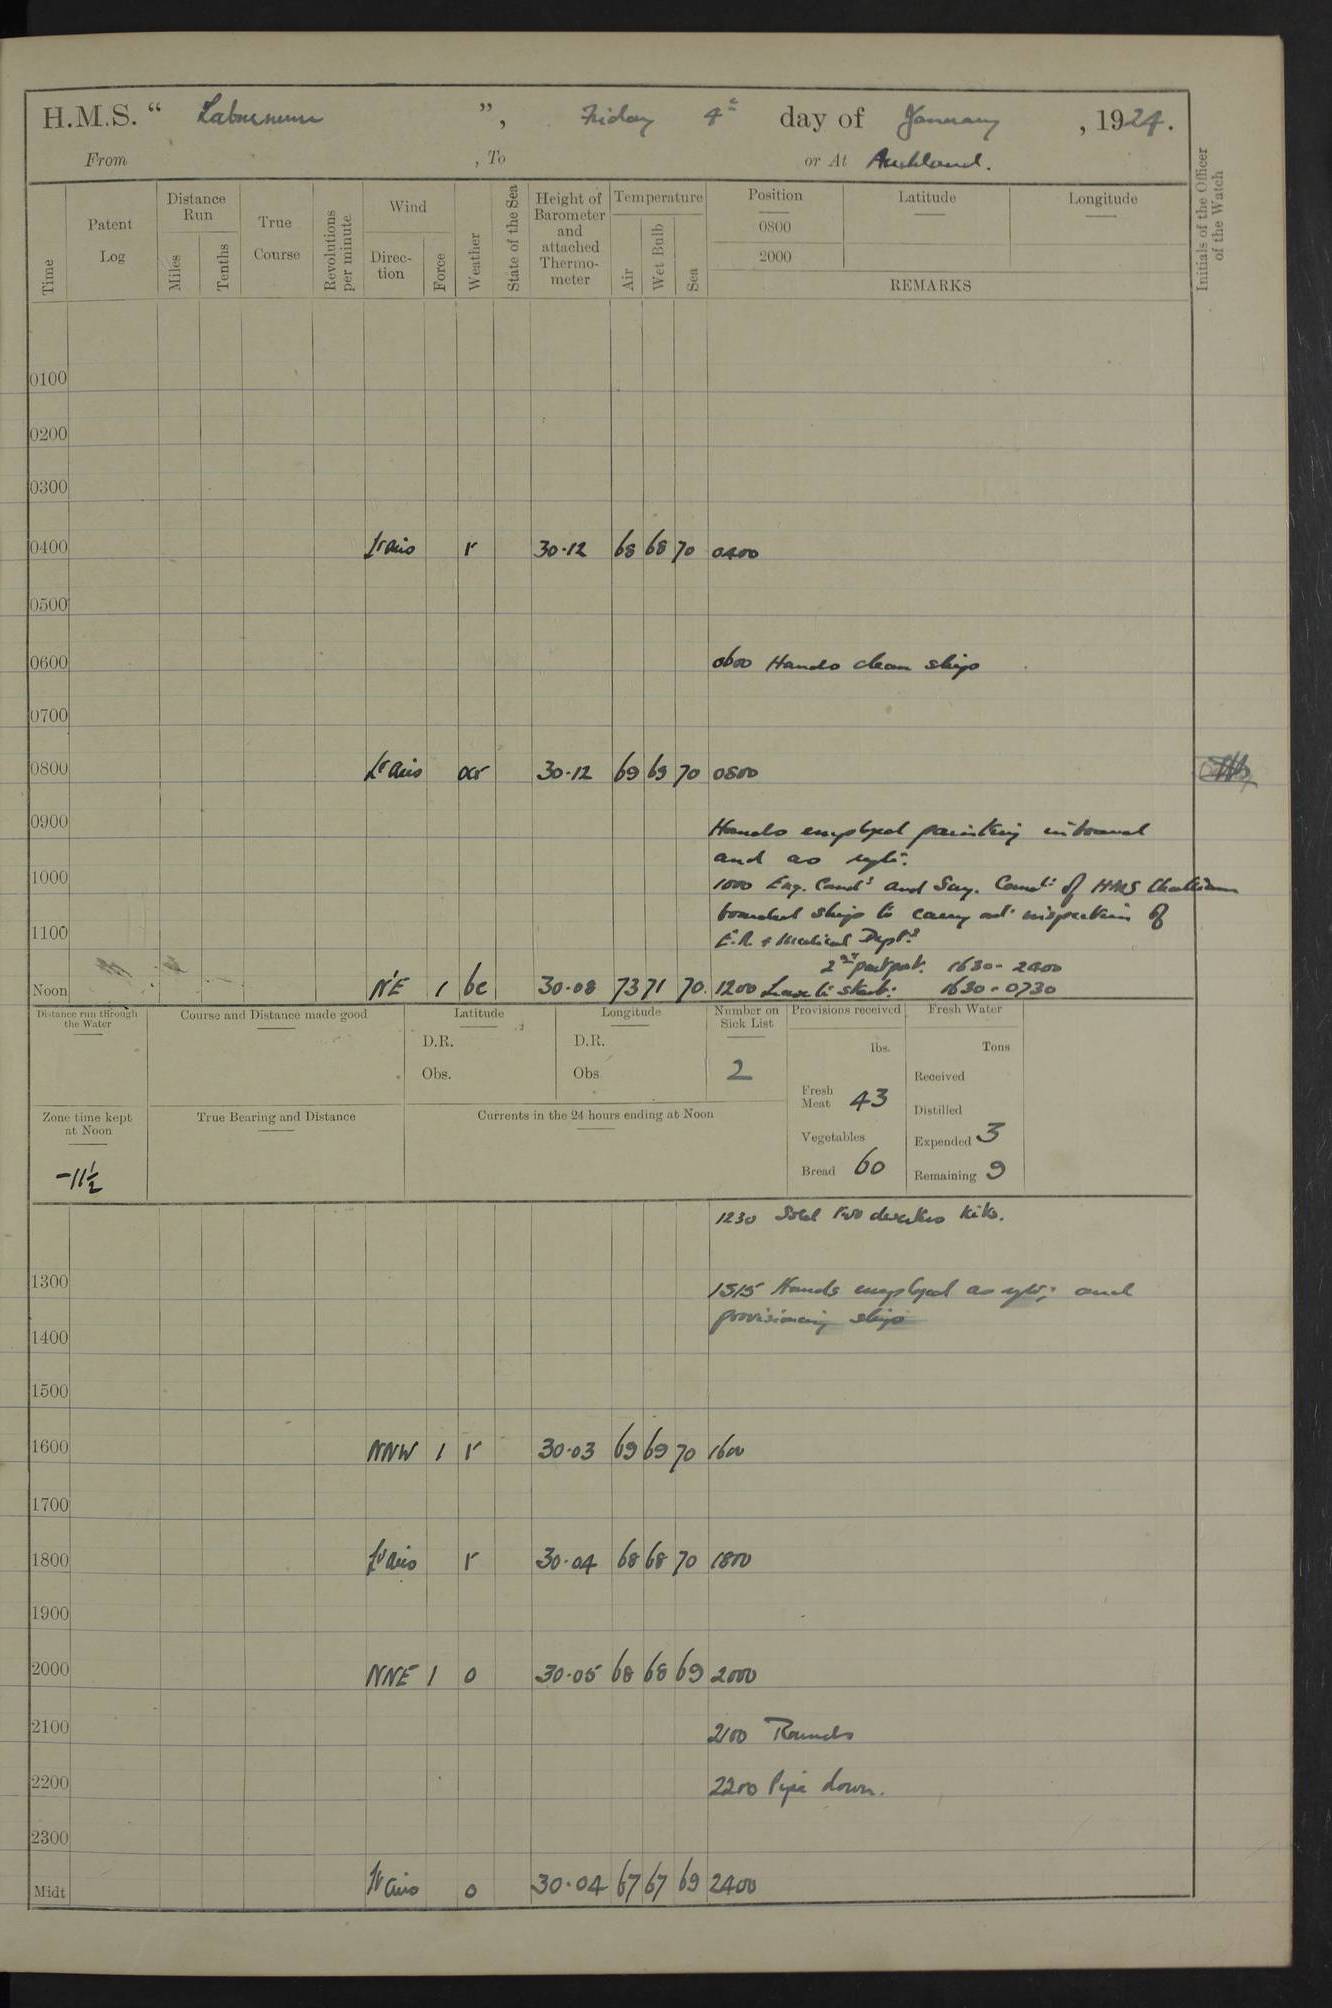 H.M.S. “ Laburnum ”, Friday 4th day of January, 1924.
From , To or At Auckland.
Time
Patent Log
Distance Run
Miles
Tenths
True Course
Revolutions per minute
Wind
Direction
Force
Weather
State of the Sea
Height of Barometer and attached Thermometer
Temperature
Air
Wet Bulb
Sea
Position
0800
2000
Latitude
Longitude
REMARKS
Initials of the Officer of the Watch
0100
0200
0300
0400 Lt airs r 30·12 68 68 70 0400
0500
0600 0600 Hands clean ship
0700
0800 Lt airs or 30·12 69 69 70 0800
0900 Hands employed painting inboard
and as reqte.
1000 1000 Eng. Comdr and Surg. Comdr of HMS Chatham
boarded ship to carry out inspection of
1100 E.R. & Medical Depts
2nd part port. 1630 - 2400
Noon NE 1 bc 30·08 73 71 70 1200 Leave to starb: 1630 - 0730
Distance run through the Water
Course and Distance made good
Latitude
D.R.
Obs.
Longitude
D.R.
Obs
Number on Sick List
2
Provisions received
lbs.
Fresh Meat 43
Vegetables
Bread 60
Fresh Water
Tons
Received
Distilled
Expended 3
Remaining 9
Zone time kept at Noon
-11½
True Bearing and Distance
Currents in the 24 hours ending at Noon
1230 Sold two deserters kits.
1300 1315 Hands employed as reqte; and
provisioning ship
1400
1500
1600 NNW 1 r 30·03 69 69 70 1600
1700
1800 Lt airs r 30·04 68 68 70 1800
1900
2000 NNE 1 o 30·05 68 68 69 2000
2100 2100 Rounds
2200 2200 Pipe down.
2300
Midt Lt airs o 30·04 67 67 69 2400